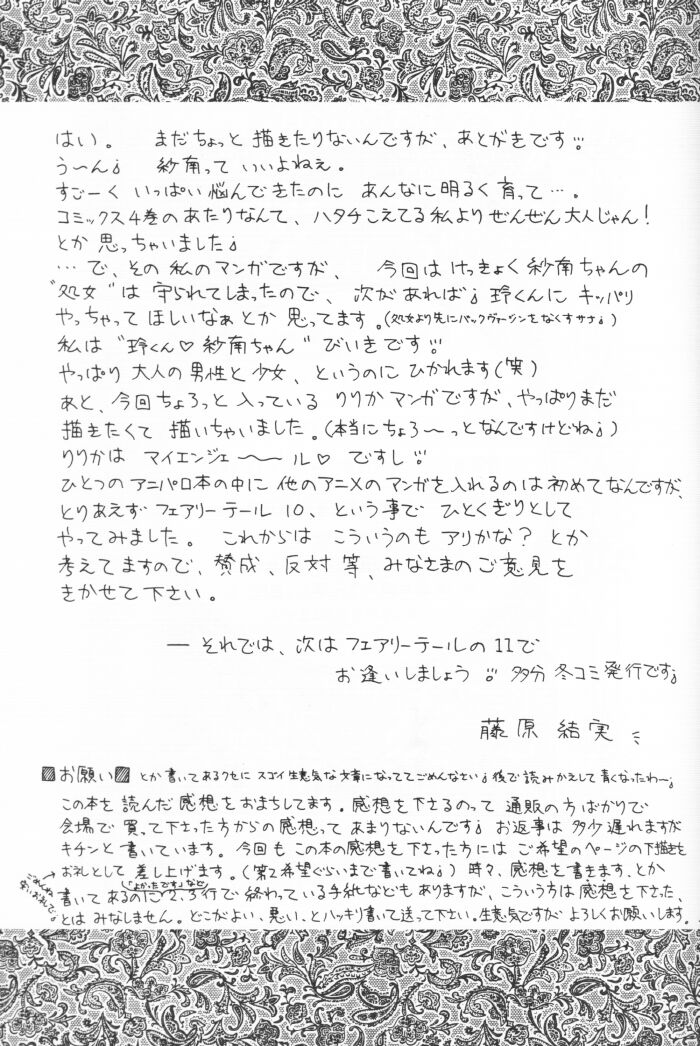 はい。 まだちょっと描きたりないんですが、あとがきです!!
う〜ん。 紗南って いいよねぇ。
すごーく いっぱい悩んできたのに あんなに明るく育って…。
コミックス4巻のあたりなんて、ハタチこえてる私よりぜんぜん大人じゃん!
とか思っちゃいました。
あと、今回ちょろっと入っている りりかマンガですが、やっぱりまだ
描きたくて 描いちゃいました。(本当にちょろ〜っとなんですけどね。)
りりかは マイエンジェ〜〜ル♡ ですし!!
ひとつのアニパロ本の中に 他のアニメのマンガを入れるのは初めてなんですが、
とりあえず フェアリーテール10、という事で ひとくぎりとして
やってみました。 これからは こういうのも アリかな? とか
考えてますので、賛成、反対 等、みなさまのご意見を
きかせて下さい。
― それでは、次はフェアリーテールの11で
お逢いしましょう!! 多分 冬コミ発行です。
藤原 結実
お願い とか書いてあるクセに スゴイ生意気な文章になっててごめんなさい。後で読みかえして青くなったわ〜。
この本を読んだ感想をおまちしてます。感想を下さるのって 通販の方ばかりで
会場で買って下さった方からの感想って あまりないんです。お返事は多少遅れますが
キチンと書いています。今回もこの本の感想を下さった方には ご希望のページの下描きを
お礼として差し上げます。(第2希望ぐらいまで書いてね。) 時々、感想を書きます、とか
ごめんね 安いお礼で。
「よかったです」など
書いてあるのに 2、3行で終わっている手紙などもありますが、こういう方は感想を下さった、
とはみなしません。どこがよい、悪い、とハッキリ書いて送って下さい。生意気ですが よろしくお願いします。